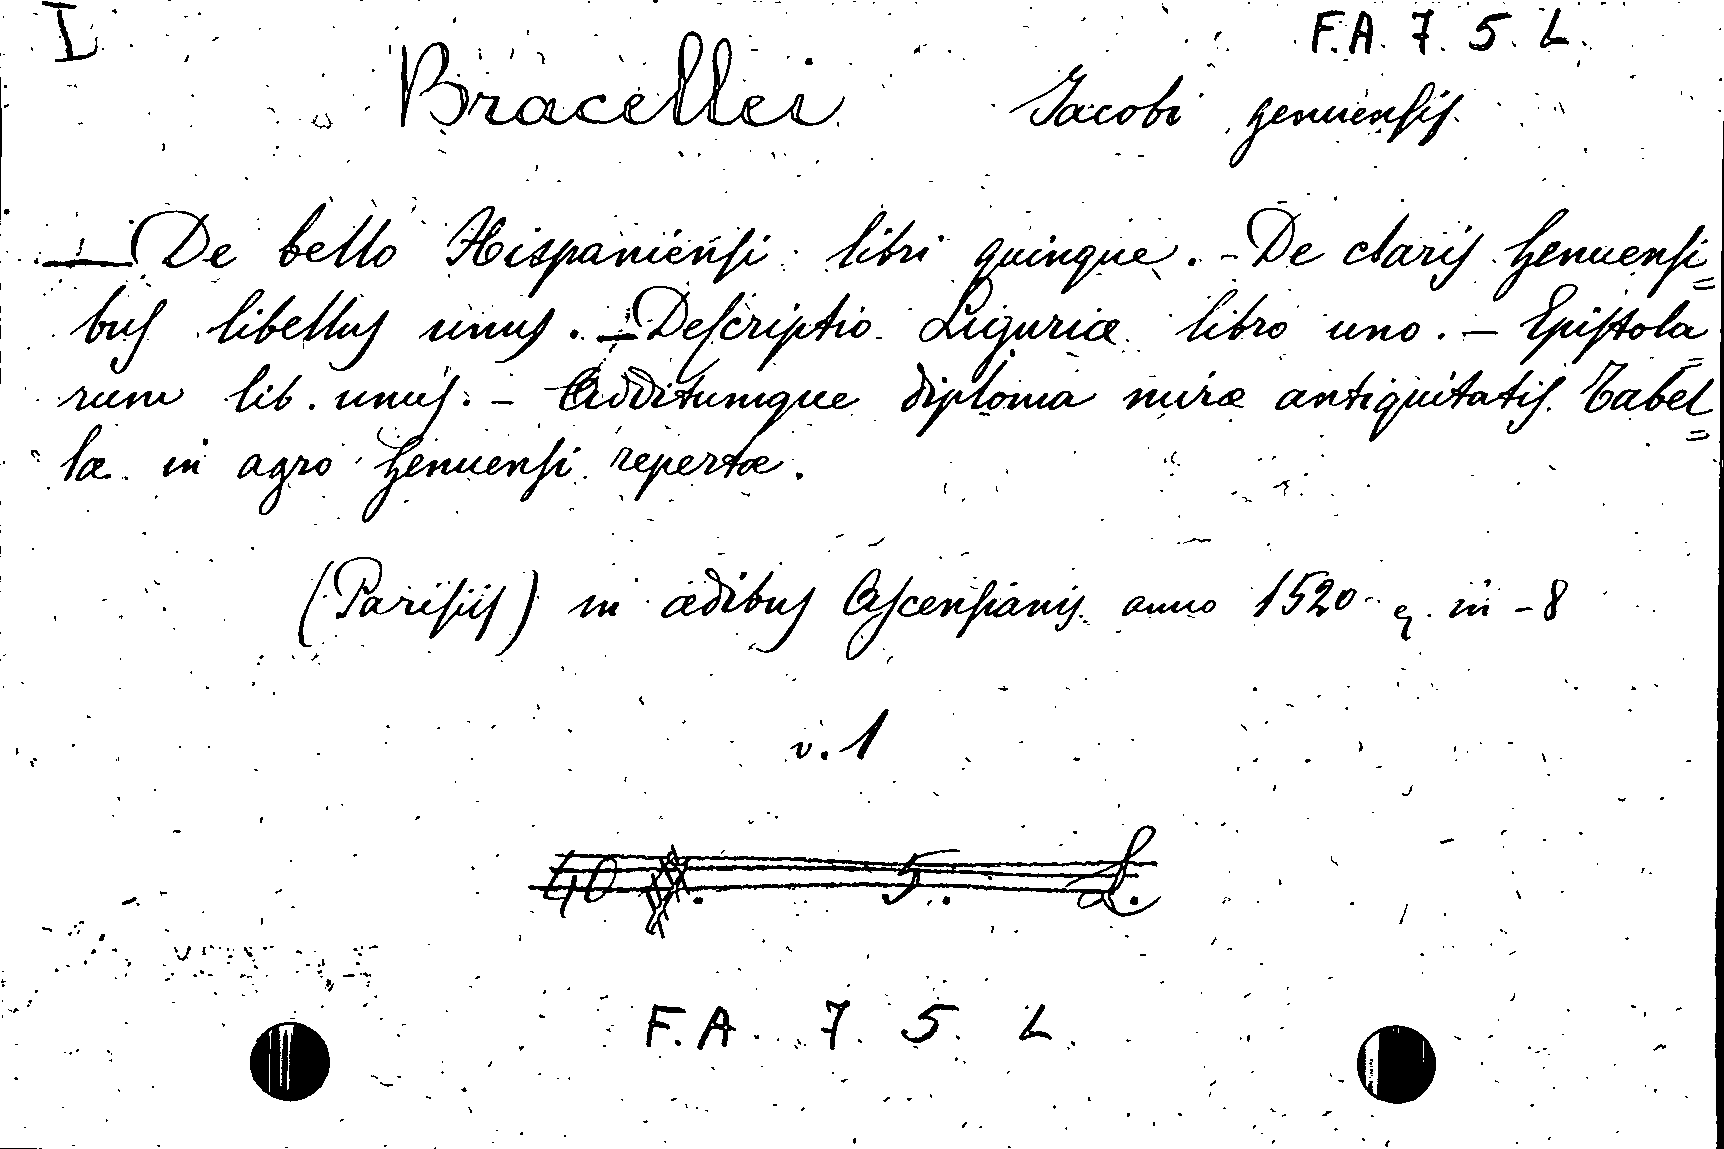 I
F. A. 7. 5. L.
Bracellei Jacobi genuensis.
— De bello Hispaniensi libri quinque. - De claris Genuensi=
bus libellus unus. — Descriptio Liguriæ libro uno. — Epistola=
rum lib. unus. - Additumque diploma miræ antiquitatis. Tabel=
læ in agro Genuensi repertæ.
(Parisiis) in ædibus Ascensianis anno 1520 in-8
v. 1
40 . 5. L.
F. A. 7. 5. L.